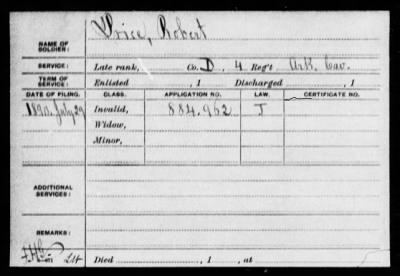 NAME OF SOLDIER: Price, Robert
SERVICE: Late rank, Co. D, 4 Reg't Ark. Cav.
TERM OF SERVICE: Enlisted , 1 Discharged , 1
DATE OF FILING. CLASS. APPLICATION NO. LAW. CERTIFICATE NO.
1890, July 29 Invalid, 884.962 J
Widow,
Minor,
ADDITIONAL SERVICES:
REMARKS:
Died , 1 , at